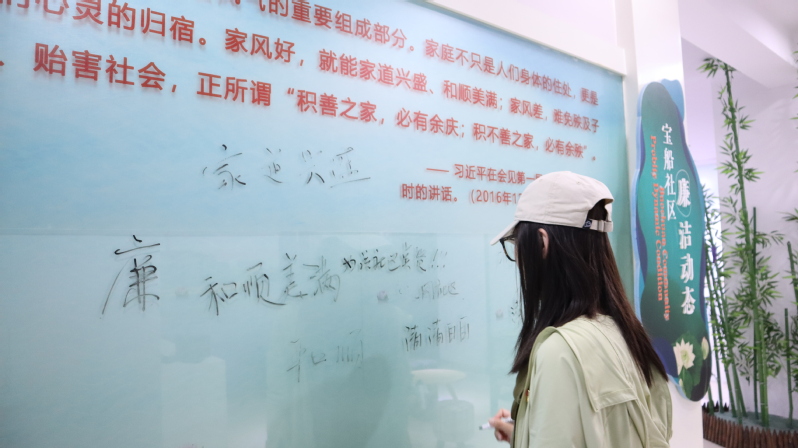 气的重要组成部分。家庭不只是人们身体的住处，更是
们心灵的归宿。家风好，就能家道兴盛、和顺美满；家风差，难免殃及子
、贻害社会，正所谓“积善之家，必有余庆；积不善之家，必有余殃”。
——习近平在会见第一
时的讲话。（2016年1
家道兴盛
廉
和顺美满
清清白白
宝船社区
廉洁动态
Baochuan Community
Probity Dynamic Condition